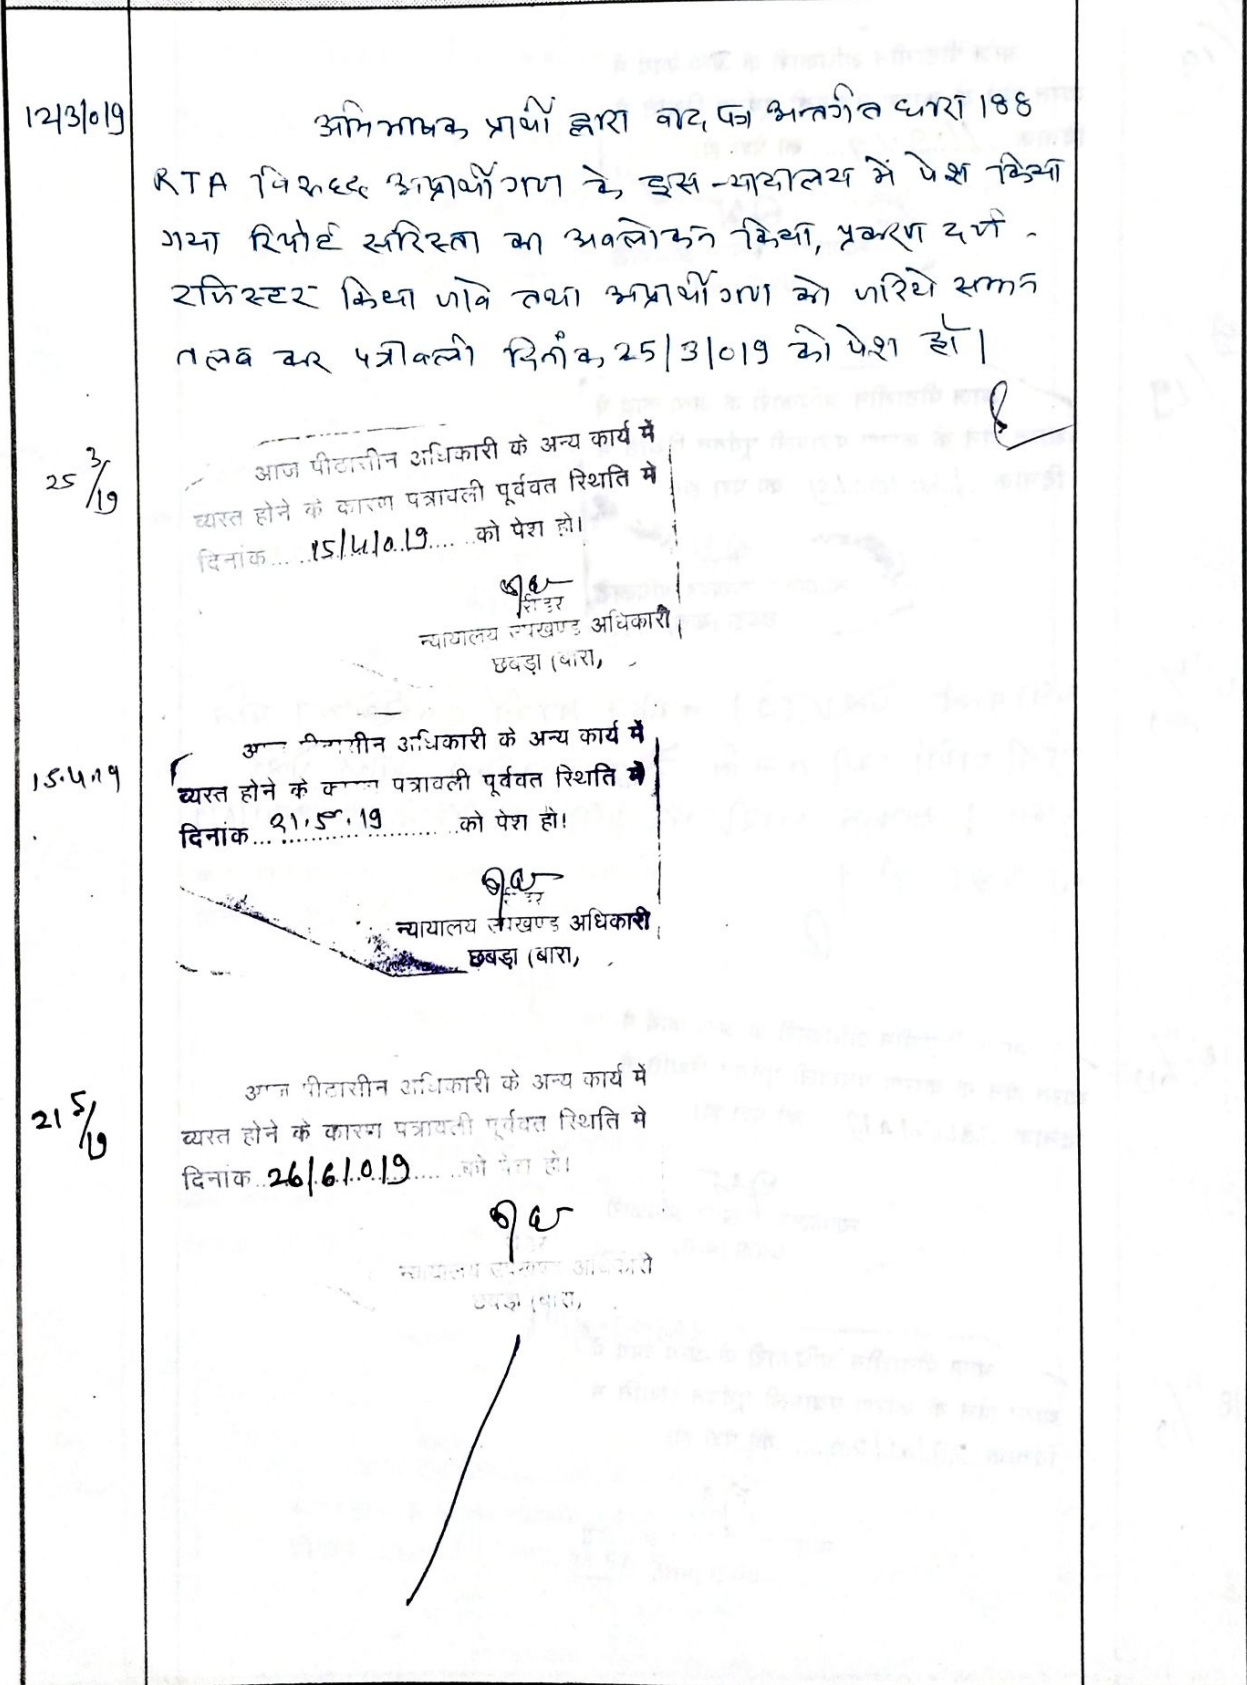 12/3/019
अभिभाषक प्रार्थी द्वारा वाद पत्र अन्तर्गत धारा 188
RTA विरुद्ध अप्रार्थीगण के इस न्यायालय में पेश किया
गया रिपोर्ट सरिस्ता का अवलोकन किया, प्रकरण दर्ज
रजिस्टर किया जावे तथा अप्रार्थीगण को जरिये सम्मन
तलब कर पत्रावली दिनांक 25/3/019 को पेश हो।
25 3/19
आज पीठासीन अधिकारी के अन्य कार्य में
व्यस्त होने के कारण पत्रावली पूर्ववत स्थिति मे
दिनांक.... 15/4/019.... को पेश हो।
रीडर
न्यायालय उपखण्ड अधिकारी
छबड़ा (बारा,
15.4.19
आज पीठासीन अधिकारी के अन्य कार्य में
व्यस्त होने के कारण पत्रावली पूर्ववत स्थिति मे
दिनांक... 21.5.19 ...को पेश हो।
रीडर
न्यायालय उपखण्ड अधिकारी
छबड़ा (बारा,
21 5/19
आज पीठासीन अधिकारी के अन्य कार्य में
व्यस्त होने के कारण पत्रावली पूर्ववत स्थिति मे
दिनांक..26/6/019......को पेश हो।
न्यायालय उपखण्ड अधिकारी
छबड़ा (बारा,